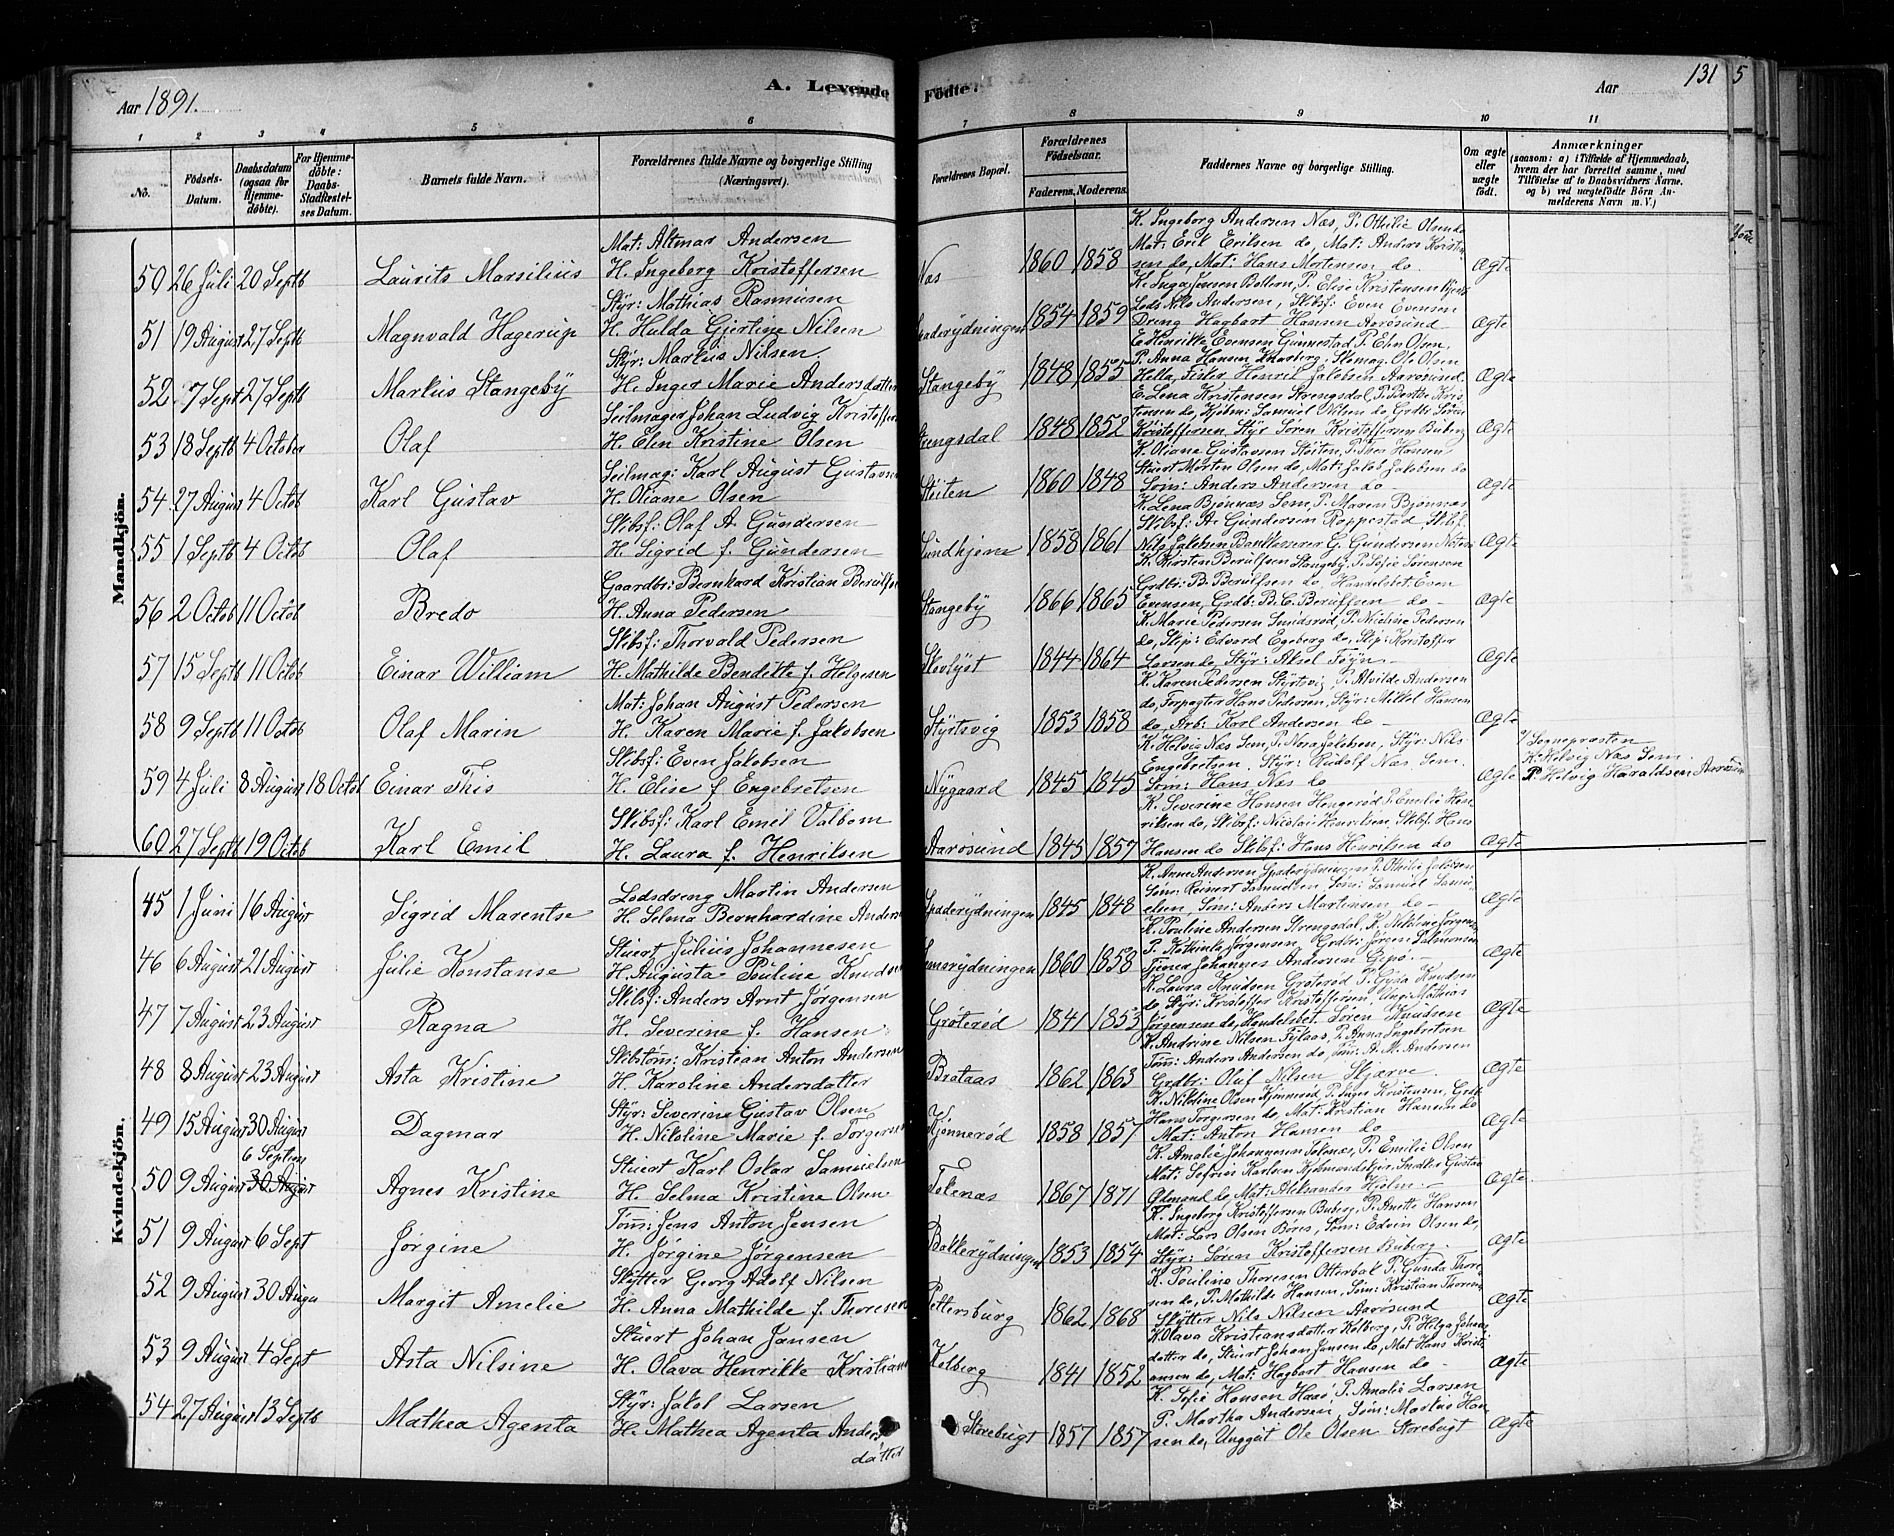 Aar 1891.
A. Levende
Födte.
Aar
131
5
1 2 3 4 5 6 7 8 9 10 11
No.
Födsels-Datum.
Daabsdatum (ogsaa for Hjemmedöbte).
For Hjemmedöbte: Daabs-Stadfæstelses Datum.
Barnets fulde Navn.
Forældrenes fulde Navne og borgerlige Stilling (Næringsvei).
Forældrenes Bopæl.
Forældrenes Födselsaar.
Faderens. Moderens.
Faddernes Navne og borgerlige Stilling.
Om ægte eller uægte födt.
Anmærkninger
(saasom: a) i Tilfælde af Hjemmedaab, hvem der har forrettet samme, med Tilföielse af to Daabsvidners Navne, og b) ved uægtefödte Börn Anmelderens Navn m. V.)
Mandkjön.
50 26 Juli 20 Septb Laurits Marsilius Mat: Altmar Andersen H. Ingeborg Kristoffersen Næs 1860 1858 K. Ingeborg Andersen Næs, P. Othilie Olsen do Mat: Erik Eriksen do, Mat: Anders Kristensen do, Mat: Hans Mortensen do Ægte
51 19 August 27 Septb Magnvald Hagerup Styr: Mathias Rasmusen H. Hulda Gjertine Nilsen Spaderydningen 1854 1859 K. Inga Jensen P. Elise Kristensen Lods Nils Andersen, Skibsf: Even Evensen Dreng Hagbart Hansen Aarøsund Ægte
52 7 Sept 27 Septb Markus Stangeby Styr: Markus Nilsen. H. Inger Marie Andersdatter Stangeby 1848 1855 E. Henrikke Evensen Gunnestad P. Elen Olsen, P. Anna Hansen Skomag. Ole Olsen Hella, Fisker Henrik Jakobsen Aarøsund Ægte
53 18 Septb 4 October Olaf Seilmager Johan Ludvig Kristoffer H. Elen Kristine Olsen Strengsdal 1848 1852 E. Lena Kristensen Strengsdal, P. Berthe Kristensen do, Samuel Nilsen do, Grdbr Søren Kristoffersen, Styr Søren Kristoffersen Buberg Ægte
54 27 August 4 Octob Karl Gustav Seilmag: Karl August Gustavsen H. Oliane Olsen Støiten 1860 1848 K. Oliane Gustavsen Støiten, P. Thea Hansen Stuert Morten Olsen do, Mat: Jakob Jakobsen do Søm: Anders Andersen do Ægte
55 1 Septb 4 Octob Olaf Skibsf: Olaf A. Gundersen H. Sigrid f. Gundersen Sundhjem 1858 1861 K. Lena Bjønnæs Sem, P. Maren Bjønnæs Skibsf: A. Gundersen Roppestad Skibsf. Nils Jakobsen Bankkasserer G. Gundersen Ægte
56 2 Octob 11 Octob Bredo Gaardbr: Bernhard Kristian Berulfsen H. Anna Pedersen Stangeby 1866 1865 K. Kirsten Berulfsen Stangeby, P. Sofie Sørensen Grdbr: B. Berulfsen do, Handelsbet. Even Evensen, Grdb: B. C. Berulfsen do Ægte
57 15 Septb 11 Octob Einar William Skibsf: Thorvald Pedersen H. Mathilde Bendikte f. Helgesen Skovlyst 1844 1864 K. Marie Pedersen Sundsrød, P. Nicline Pedersen do, Skip: Edvard Egeberg do, Skip: Kristoffer Larsen do, Styr: Aksel Føyn Ægte
58 9 Septb 11 Octob Olaf Marin Mat: Johan August Pedersen H. Karen Marie f. Jakobsen Styrtsvig 1853 1858 K. Karen Pedersen Styrtsvig, P. Alvilde Andersen do, Forpagter Hans Pedersen, Styr: Mikkel Hansen do, Arb: Karl Andersen do Ægte
59 4 Juli 8 August 18 Octob Einar This Skibsf: Even Jakobsen H. Elise f Engebretsen Nygaard 1845 1845 K. Helvig Næs Sem, P. Nora Jakobsen, Styr: Nils Engebretsen, Styr: Rudolf Næs Sem Søm: Hans Næs do Ægte v/ Sognepræsten K. Helvig Næs Sem. P. Helvig Haraldsen Aarøsund
60 27 Septb 19 Octob Karl Emil Skibsf: Karl Emil Valbom H. Laura f. Henriksen Aarøsund 1845 1857 K. Severine Hansen Hengerød P. Emilie Henriksen do, Skibsf: Nicolai Henriksen, Skibsf. Hans Hansen do Skibsf: Hans Henriksen do Ægte
Kvindekjön.
45 1 Juni 16 August Sigrid Marentse Lodsdreng Martin Andersen H. Selma Bernhardine Anders Spaderydningen 1845 1848 K. Anne Andersen Spaderydningen P. Othilie Jakobsen Søm: Reinert Samuelsen Søm: Samuel Samuelsen, Søm: Anders Martensen do Ægte
46 6 August 21 August Julie Konstanse Stuert Julius Johannesen H. Augusta Pouline Knuds 1860 1858 K. Pouline Andersen Strengsdal, K. Nikoline Jørgens P. Kathinka Jørgensen, Grdbr: Jørgen Salmonsen Tjener Johannes Andersen Gipø. Ægte
47 7 August 23 August Ragna Skibsf: Anders Arnt Jørgensen H. Severine f. Hansen Grøterød 1841 1853 K. Laura Knudsen Grøterød P. Gyda Knudsen do Styr: Kristoffer Kristoffersen, Ung: Mathias Jørgensen do, Handelsbet. Søren Knudsen Ægte
48 8 August 23 August Asta Kristine Skibstøm: Kristian Anton Andersen H. Karoline Andersdatter Brataas 1862 1863 K. Andrine Nilsen Fylaas, P. Anna Engebretsen Tøm: Anders Andersen do, Tøm: A. M. Andersen Grdbr: Oluf Nilsen Skjærve. Ægte
49 15 August 30 August Dagmar Styr: Severine Gustav Olsen H. Nikoline Marie f. Torgersen Kjønnerød 1858 1857 K. Nikoline Olsen Kjønnerød, P. Inger Kristensen, Grdb Hans Torgersen do Mat: Kristian Hansen do Mat: Anton Hansen do Ægte
50 9 August 6 Septem 30 August Agnes Kristine Stuert Karl Oskar Samuelsen H. Selma Kristine Olsen Tolenæs 1867 1871 K. Amalie Johannesen Tolenæs, P. Emilie Olsen Mat: Sofrus Karlsen Kjøbmandskjær, Snedker Gustav Ødmand do, Mat: Aleksander Hjolm. Ægte.
51 9 August 6 Sept Jørgine Tøm: Jens Anton Jensen H. Jørgine Jørgensen Bakkerydningen 1853 1854 K. Ingeborg Kristoffersen Buberg, P. Anette Hansen Mat: Lars Olsen Børes, Søm: Edvin Olsen do, Styr: Søren Kristoffersen Buberg. Ægte
52 9 August 30 Augu Margit Amelie Skytter Georg Adolf Nilsen H. Anna Mathilde f. Thoresen Pettersburg 1862 1868 K. Pouline Thoresen Otterbæk P. Gunda Thoresen do, P. Mathilde Hansen, Søm: Kristian Thoresen, Skytter Nils Nilsen Aarøsund Ægte
53 9 August 4 Sept Asta Nilsine Stuert Johan Jansen H. Olava Henrikke Kristians Kolberg 1841 1852 K. Olava Kristiansdatter Kolberg, P. Helga Johansdatter do, Stuert Johan Jansen do, Mat Hans Kristiansen do, Mat: Hagbart Hansen do Ægte
54 27 August 13 Septb Mathea Agenta Styr: Jakob Larsen H. Mathea Agenta Andersdatter Storebugt 1857 1857 K. Sofie Hansen Haaø P. Amalie Larsen P. Martha Andersen, Søm: Marius Hansen do, Unggut Ole Olsen Storebugt Ægte